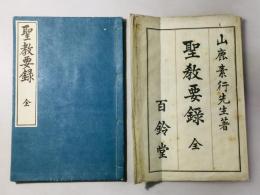 聖教要録 全
山鹿素行先生著
聖教要録 全
百鈴堂